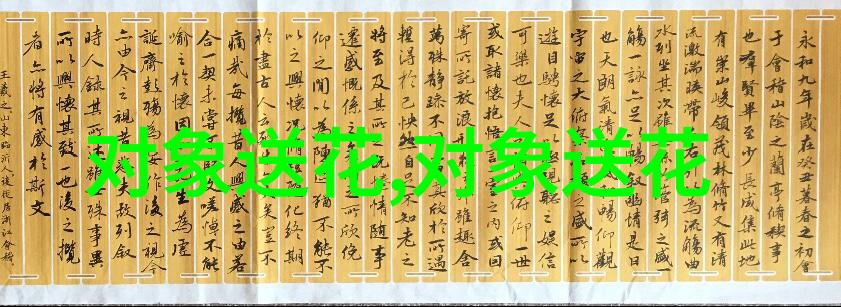 对象送花,对象送花
永和九年歲在癸丑暮春之初會
于會稽山陰之蘭亭脩稧事
也群賢畢至少長咸集此地
有崇山峻領茂林脩竹又有清
流激湍暎帶右為流觴曲
水列坐其次雖管弦之盛一
觴一詠亦足以暢敘幽情是日
也天朗氣清暢仰觀
宇宙之大俯察之所以
遊目騁懷足以視聽之娛信
可樂也夫人仰一世
或取諸懷抱悟言室之内或因
寄所託放浪形雖趣舍
萬殊靜躁不同欣於所遇
暫得於己快然自不知老之
將至及其所情隨事
遷感慨係之所欣俛
仰之間以為陳猶不能不
以之興懷況化終期
於盡古人云矣豈不
痛哉每攬昔人興感之由若
合一契未嘗不嗟悼不能
喻之於懷固生為虛
誕齊彭殤為妄作後之視今
亦由今之視昔夫故列敘
時人錄其所殊事異
所以興懷其致一也後之攬
者亦將有感於斯文
王羲之山東臨沂人後徙居浙江會稽